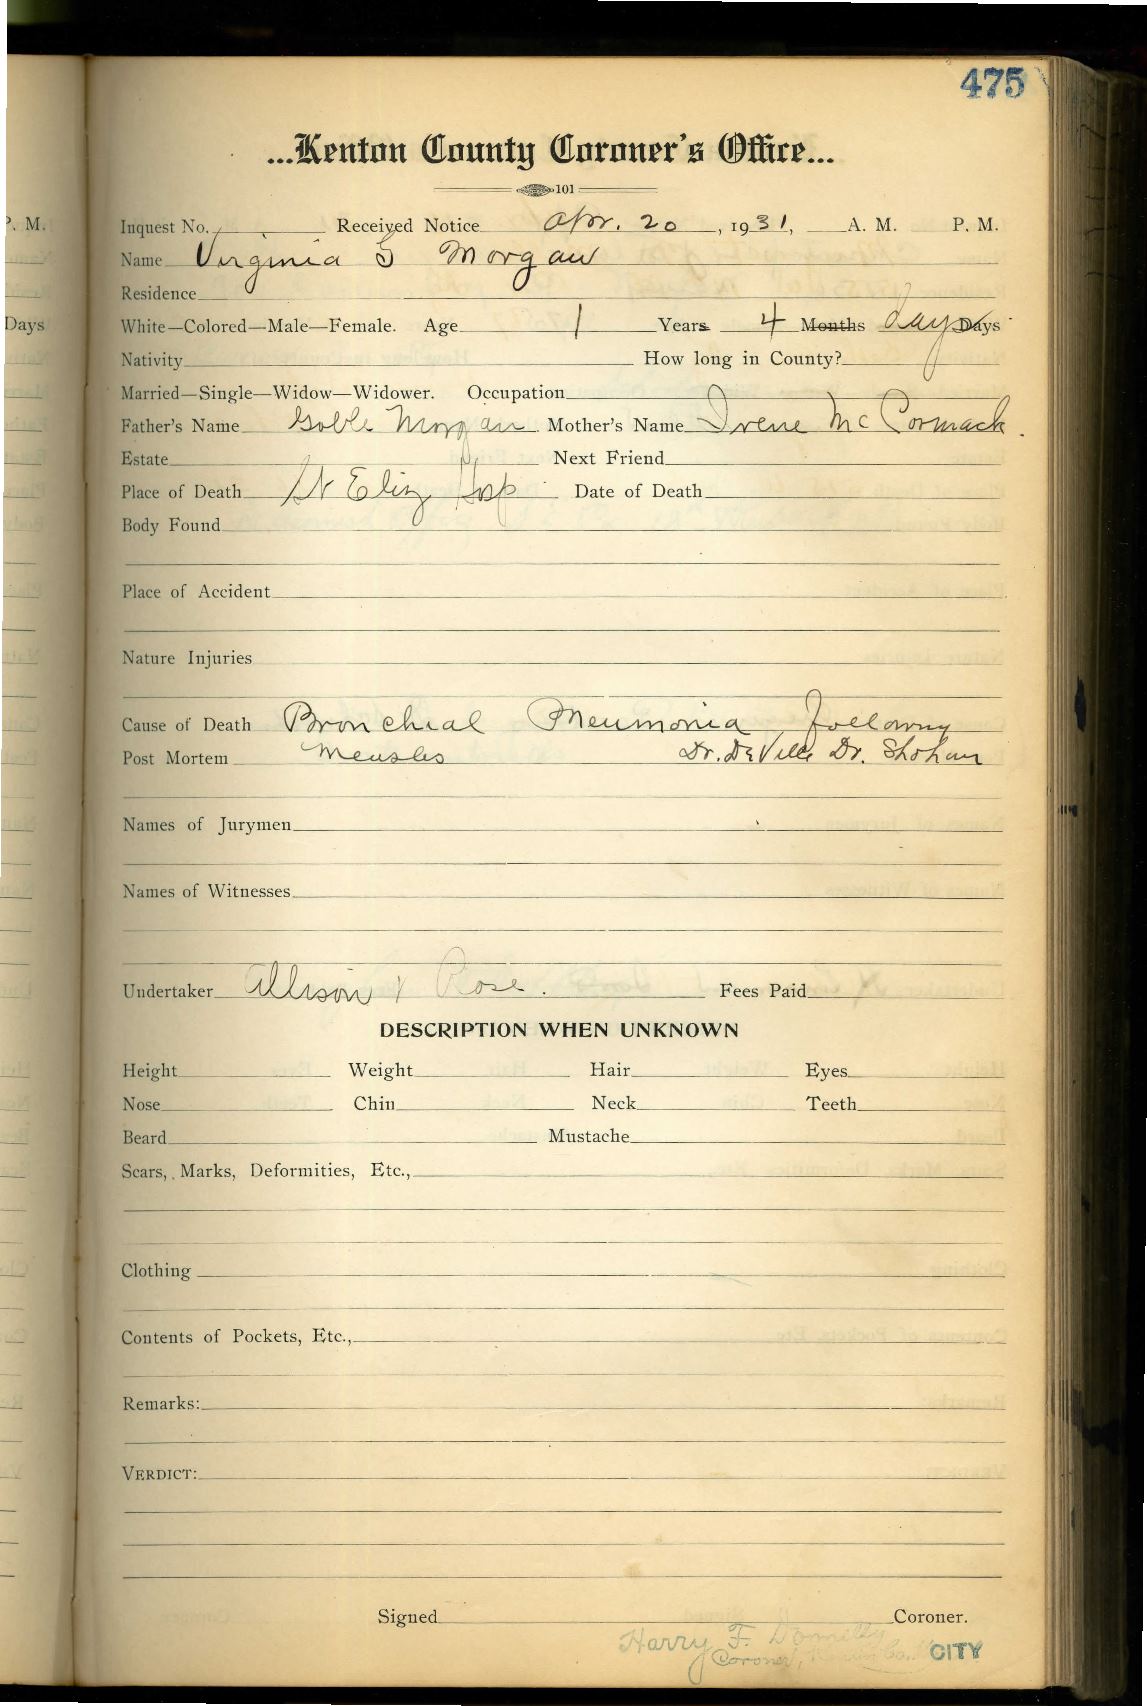 475
...Kenton County Coroner's Office...
101
P. M.
Inquest No. Received Notice Apr. 20, 1931, A. M. P. M.
Name Virginia G Morgan
Residence
Days
White—Colored—Male—Female. Age 1 Years 4 Months days Days
Nativity How long in County?
Married—Single—Widow—Widower. Occupation
Father's Name Goble Morgan Mother's Name Irene McCormack.
Estate Next Friend
Place of Death St Eliz Hosp Date of Death
Body Found
Place of Accident
Nature Injuries
Cause of Death Bronchial Pneumonia following
Post Mortem Measles Dr. DeVille Dr. Shohan
Names of Jurymen
Names of Witnesses
Undertaker Allison & Rose. Fees Paid
DESCRIPTION WHEN UNKNOWN
Height Weight Hair Eyes
Nose Chin Neck Teeth
Beard Mustache
Scars, Marks, Deformities, Etc.,
Clothing
Contents of Pockets, Etc.,
Remarks:
VERDICT:
Signed Coroner.
Harry F. Donnelly
Coroner, Kenton Co. CITY